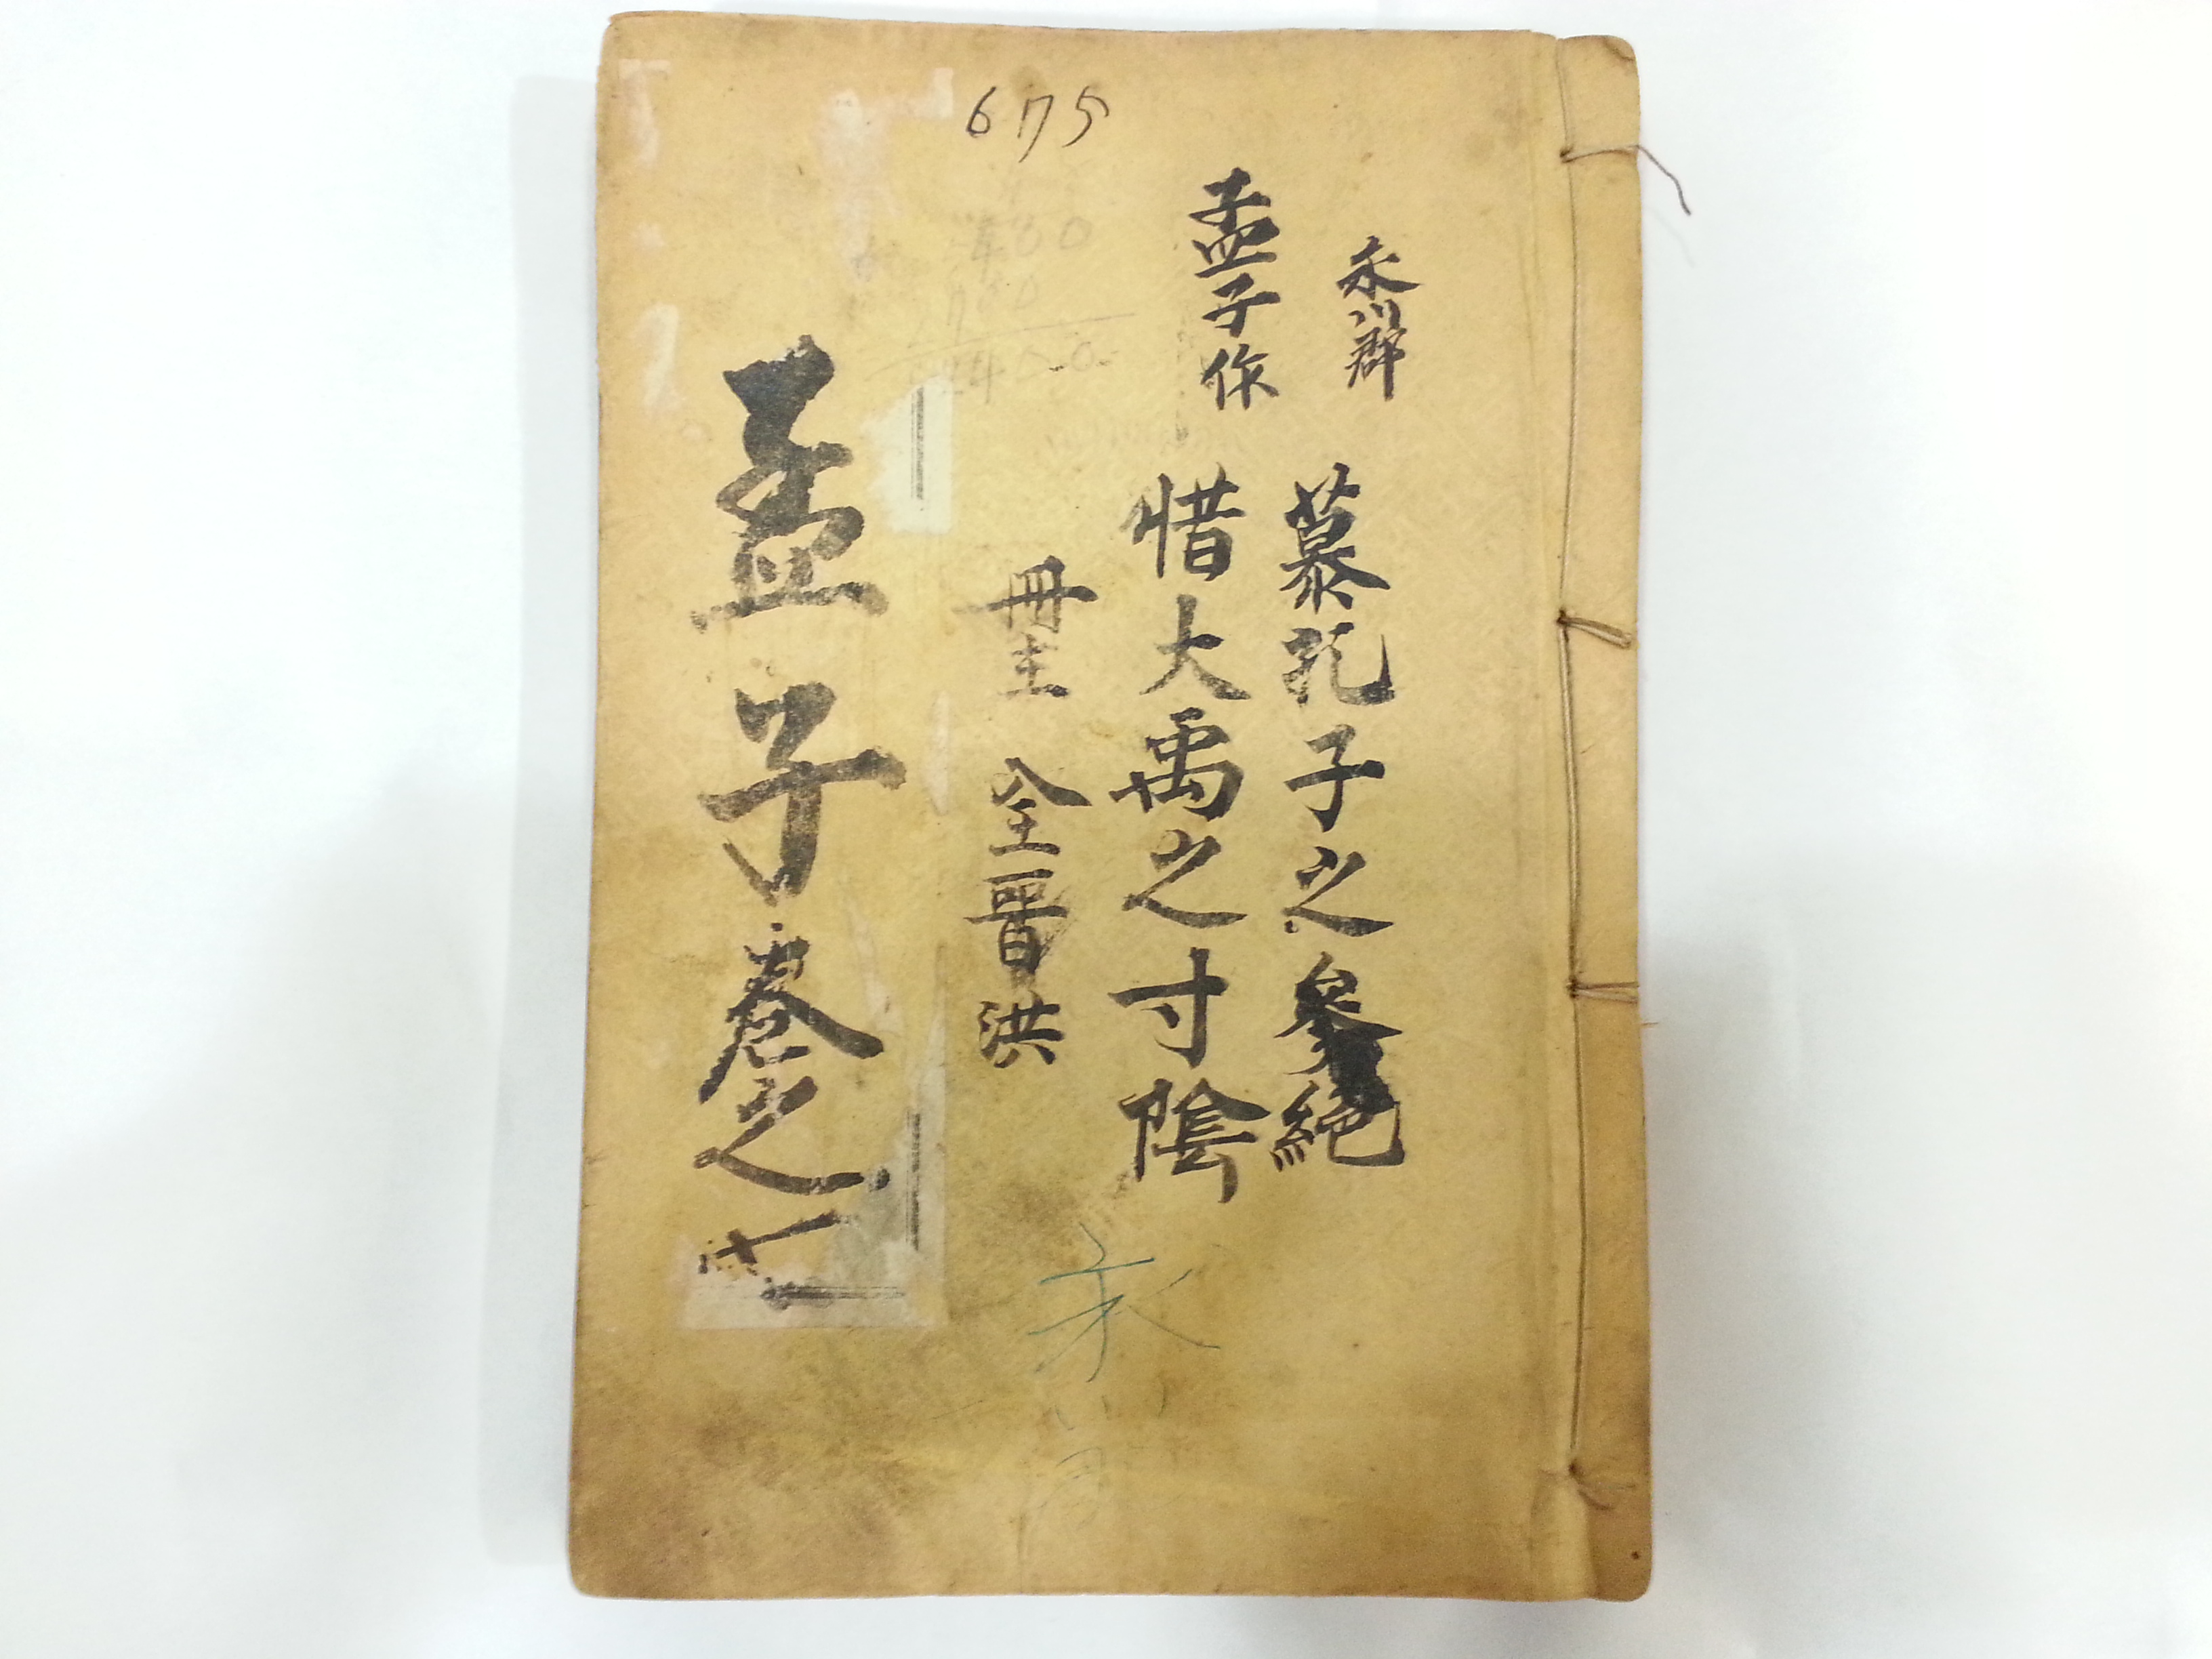 675
永川郡
慕孔子之參絶
孟子作
惜大禹之寸陰
冊主 全晋洪
孟子卷之